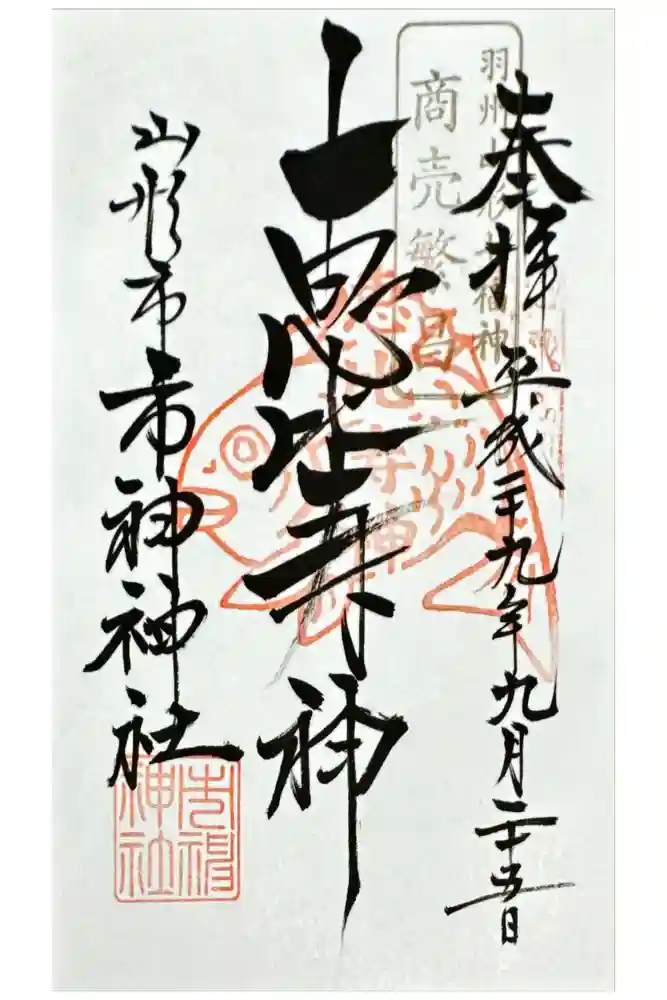 奉拝 平成二十九年九月二十五日
羽州山形七福神
商売繁昌
恵比寿神
恵比寿神
山形市 市神神社
市神
神社